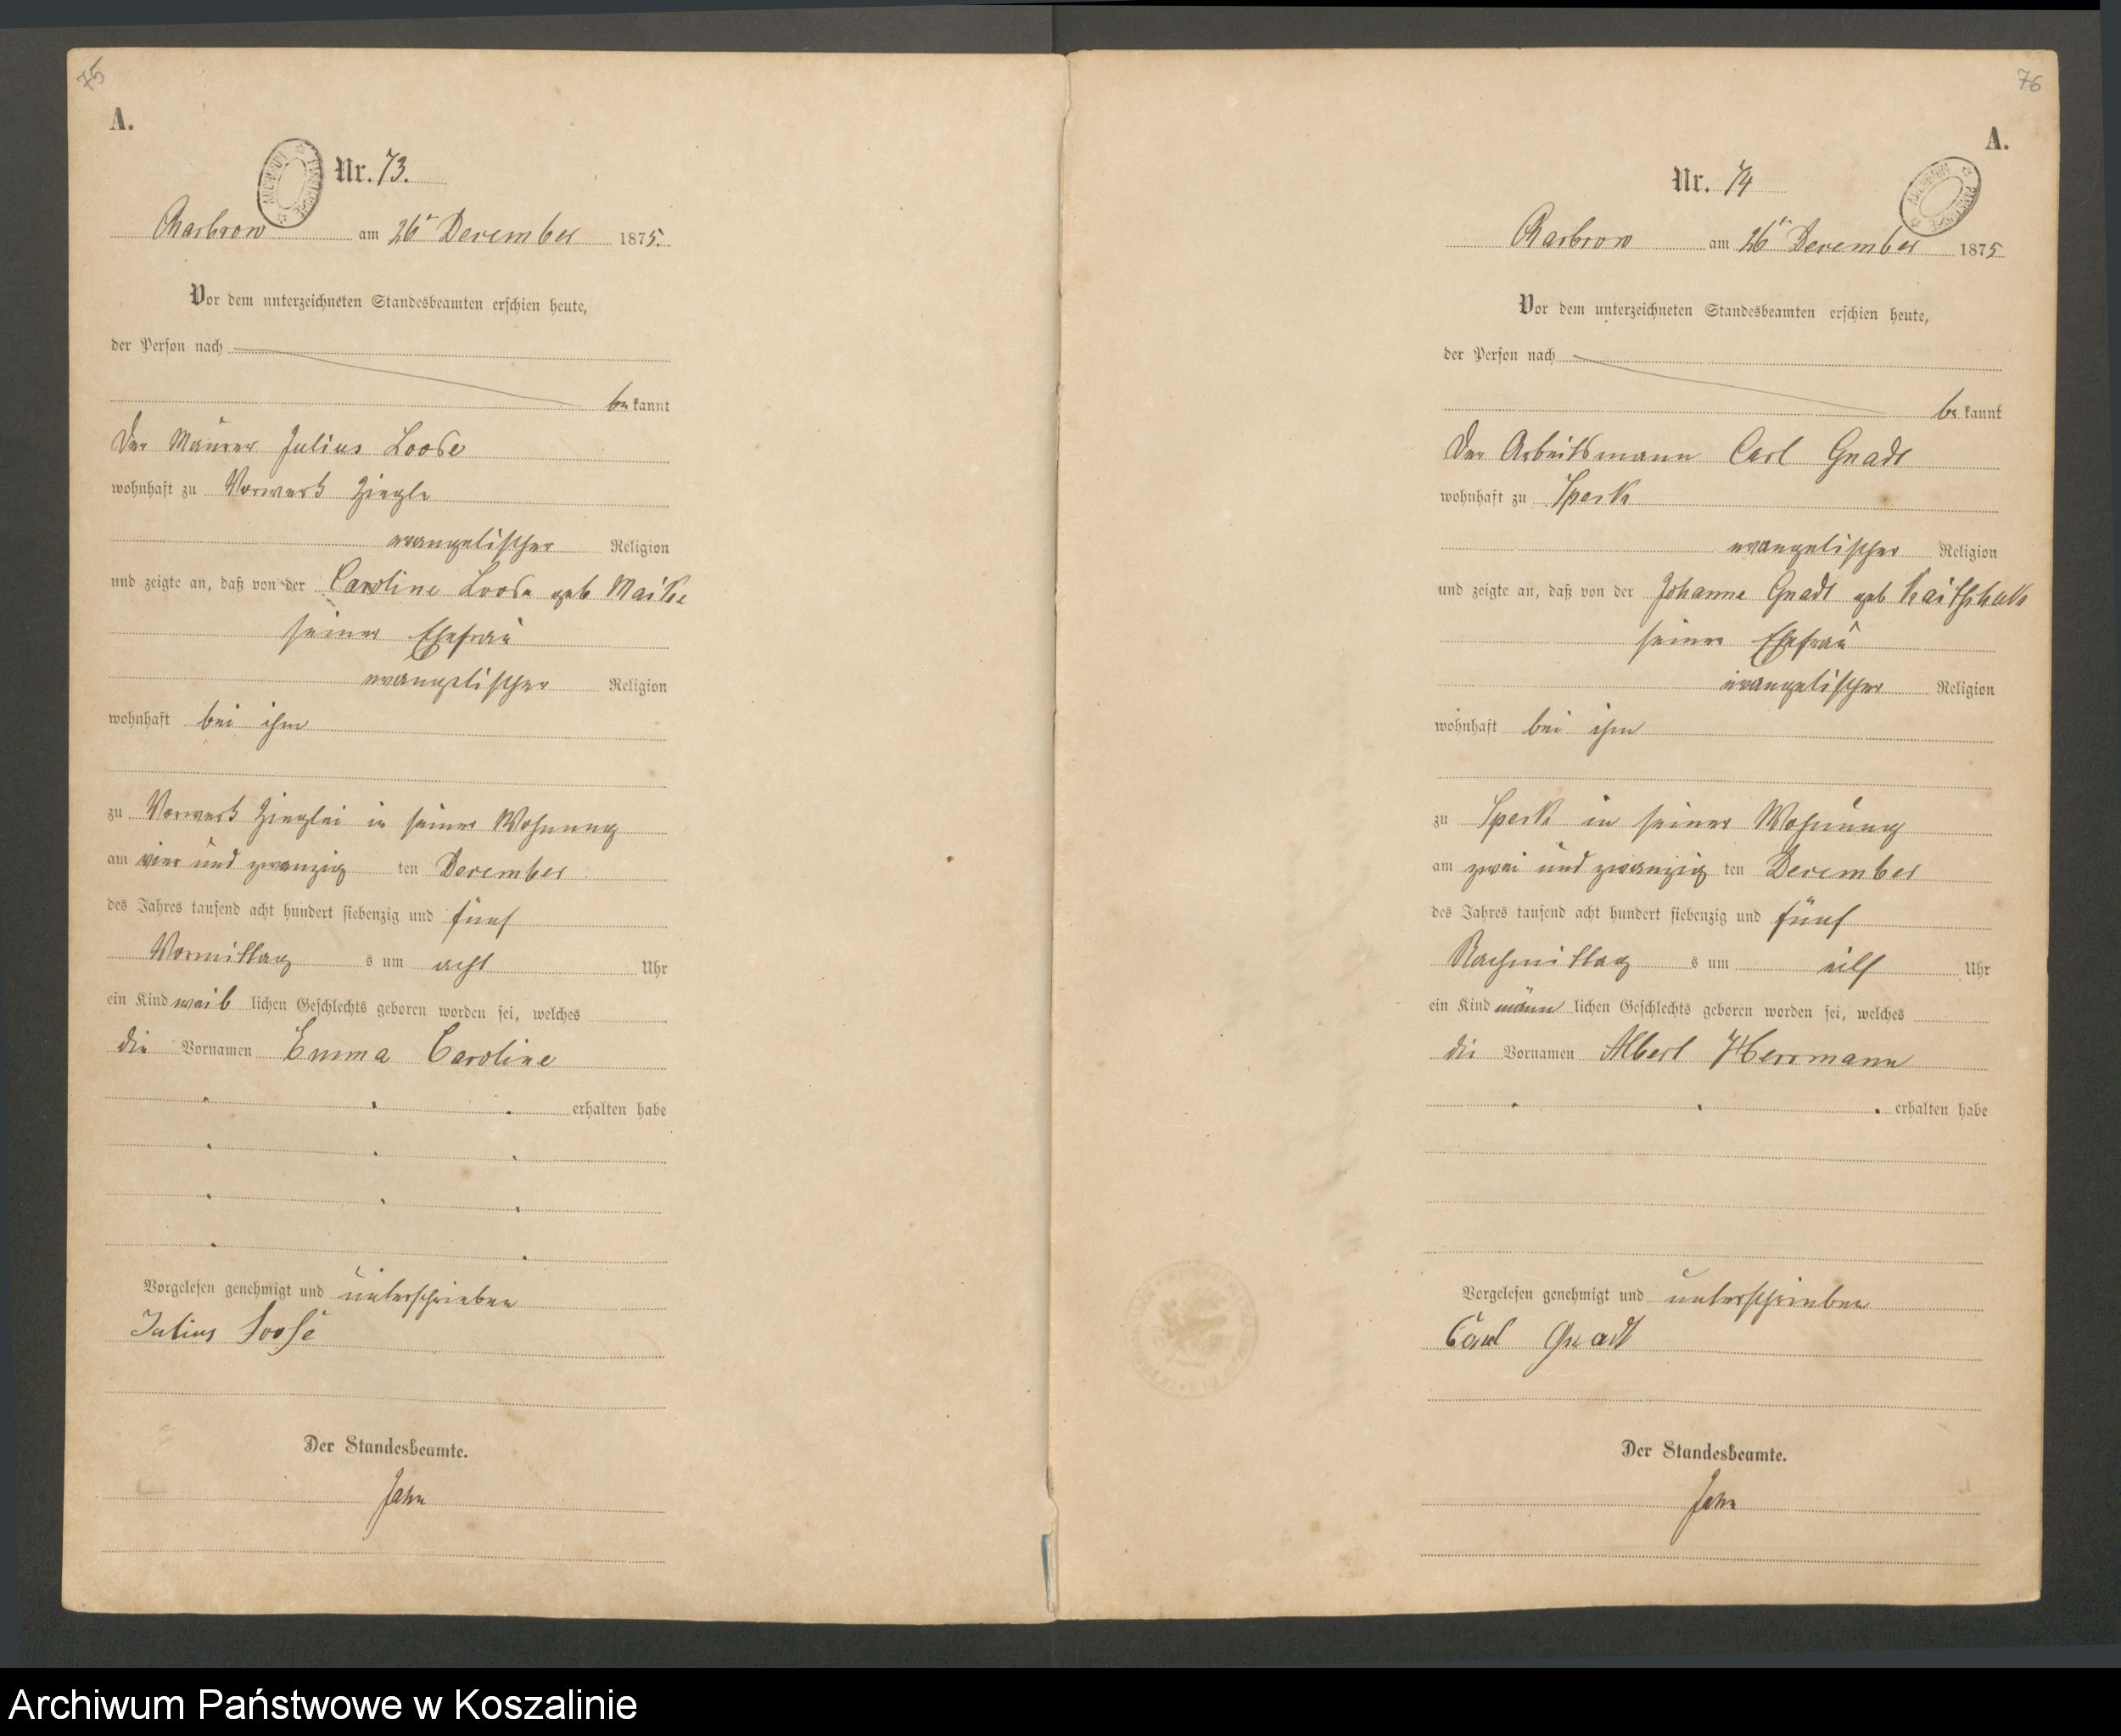 75
A.
Nr. 73.
Charbrow am 26t December 1875.
Vor dem unterzeichneten Standesbeamten erschien heute,
der Person nach
be kannt
Der Maurer Julius Loose
wohnhaft zu Vorwerk Ziegle
evangelischer Religion
und zeigte an, daß von der Caroline Loose geb
seiner Ehefrau
evangelischer Religion
wohnhaft bei ihm
zu Vorwerk Zieglei in seiner Wohnung
am vier und zwanzig ten December
des Jahres tausend acht hundert siebenzig und fünf
Vormittag s um acht Uhr
ein Kind weib lichen Geschlechts geboren worden sei, welches
die Vornamen Emma Caroline
erhalten habe
Vorgelesen genehmigt und unterschrieben
Julius Loose
Der Standesbeamte.
Jahn
76
A.
Nr. 74
Charbrow am 26t December 1875
Vor dem unterzeichneten Standesbeamten erschien heute,
der Person nach
be kannt
Der Arbeitsmann Carl Gnadt
wohnhaft zu Speck
evangelischer Religion
und zeigte an, daß von der Johanne Gnadt geb
seiner Ehefrau
evangelischer Religion
wohnhaft bei ihm
zu Speck in seiner Wohnung
am zwei und zwanzig ten December
des Jahres tausend acht hundert siebenzig und fünf
Nachmittag s um eilf Uhr
ein Kind männ lichen Geschlechts geboren worden sei, welches
die Vornamen Albert Herrmann
erhalten habe
Vorgelesen genehmigt und unterschrieben
Carl Gnadt
Der Standesbeamte.
Jahn
Archiwum Państwowe w Koszalinie